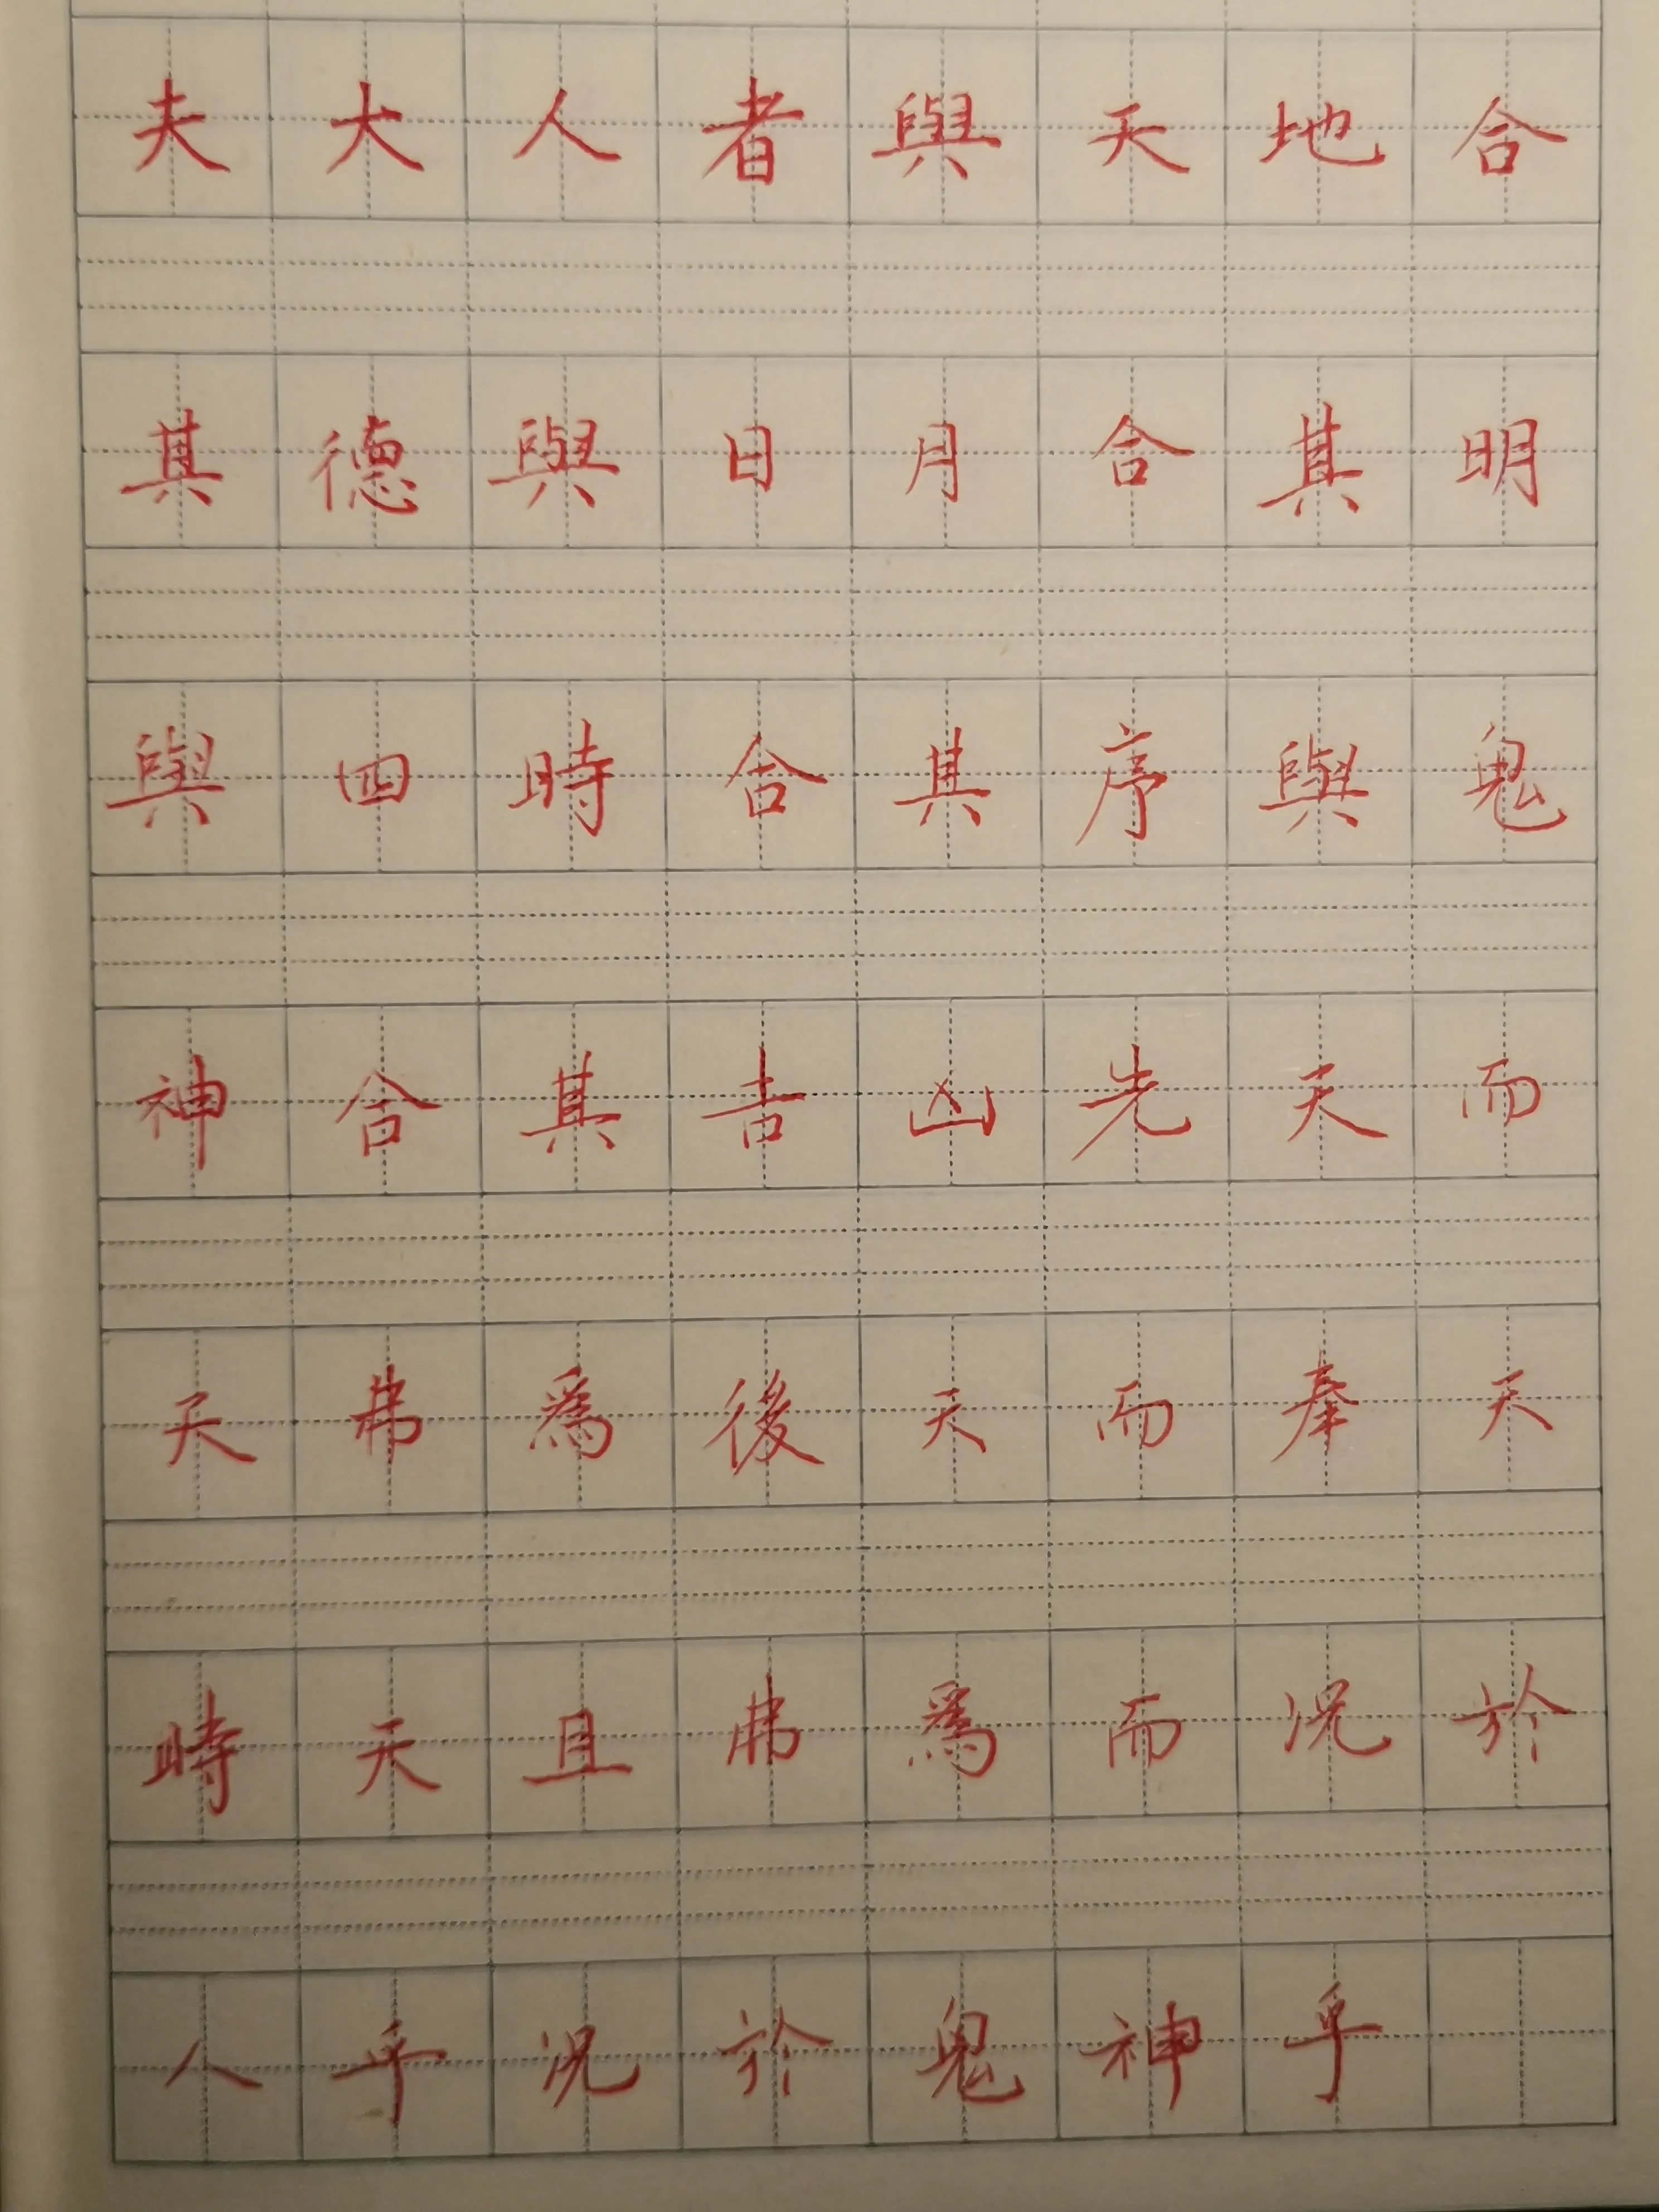 夫大人者與天地合
其德與日月合其明
與四時合其序與鬼
神合其吉凶先天而
天弗爲後天而奉天
時天且弗爲而況於
人乎況於鬼神乎